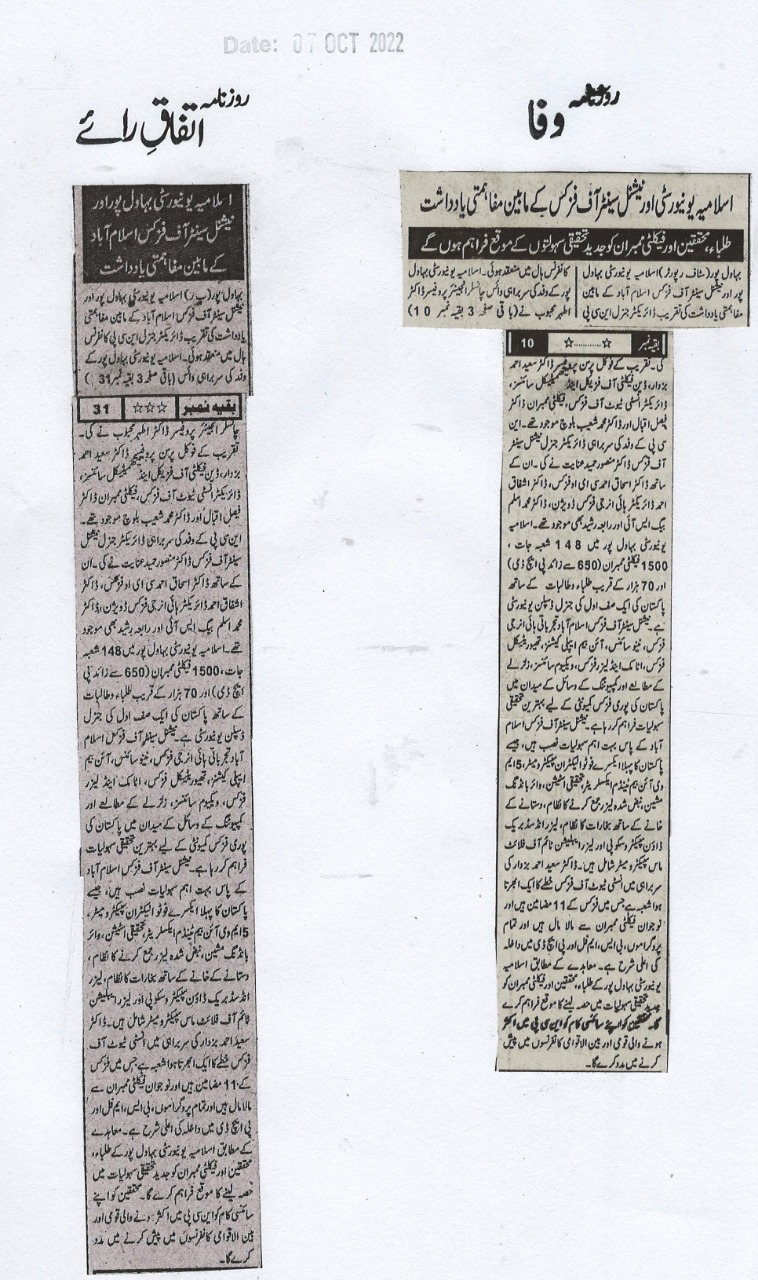 Date: 07 OCT 2022
روزنامہ وفا
اسلامیہ یونیورسٹی اور نیشنل سینٹر آف فزکس کے مابین مفاہمتی یادداشت
طلباء، محققین اور فیکلٹی ممبران کو جدید تحقیقی سہولتوں کے موقع فراہم ہوں گے
بہاول پور (سٹاف رپورٹر) اسلامیہ یونیورسٹی بہاول
پور اور نیشنل سینٹر آف فزکس اسلام آباد کے مابین
مفاہمتی یادداشت کی تقریب ڈائریکٹر جنرل این سی پی
کانفرنس ہال میں منعقد ہوئی۔ اسلامیہ یونیورسٹی بہاول
پور کے وفد کی سربراہی وائس چانسلر انجینئر پروفیسر ڈاکٹر
اطہر محبوب نے (باقی صفحہ 3 بقیہ نمبر 10)
بقیہ نمبر ☆............☆ 10
کی۔ تقریب کے فوکل پرسن پروفیسر ڈاکٹر سعید احمد
بزدار، ڈین فیکلٹی آف فزیکل اینڈ میتھمیٹیکل سائنسز،
ڈائریکٹر انسٹی ٹیوٹ آف فزکس، فیکلٹی ممبران ڈاکٹر
فیصل اقبال اور ڈاکٹر محمد شعیب بلوچ موجود تھے۔ این
سی پی کے وفد کی سربراہی ڈائریکٹر جنرل نیشنل سینٹر
آف فزکس ڈاکٹر منصور حمید عنایت نے کی۔ ان کے
ساتھ ڈاکٹر اسحاق احمد سی ای او فزکس، ڈاکٹر اشفاق
احمد ڈائریکٹر ہائی انرجی فزکس ڈویژن، ڈاکٹر محمد اسلم
بیگ ایس آئی اور رابعہ رشید بھی موجود تھے۔ اسلامیہ
یونیورسٹی بہاول پور میں 148 شعبہ جات،
1500 فیکلٹی ممبران (650 سے زائد پی ایچ ڈی)
اور 70 ہزار کے قریب طلباء و طالبات کے ساتھ
پاکستان کی ایک صف اول کی جنرل ڈسپلن یونیورسٹی
ہے۔ نیشنل سینٹر آف فزکس اسلام آباد تجرباتی ہائی انرجی
فزکس، نینو سائنس، آئن بیم ایپلی کیشنز، تھیوریٹیکل
فزکس، اٹامک اینڈ لیزر فزکس، ویکیوم سائنسز، زلزلے
کے مطالعے اور کمپیوٹنگ کے وسائل کے میدان میں
پاکستان کی پوری فزکس کمیونٹی کے لیے بہترین تحقیقی
سہولیات فراہم کر رہا ہے۔ نیشنل سینٹر آف فزکس اسلام
آباد کے پاس بہت اہم سہولیات نصب ہیں، جیسے
پاکستان کا پہلا ایکسرے فوٹو الیکٹران سپیکٹرومیٹر، 5 ایم
وی آئن بیم ٹینڈم ایکسلریٹر، تحقیقی اسٹیشن، وائر بانڈنگ
مشین، نبض شدہ لیزر جمع کرنے کا نظام، دستانے کے
خانے کے ساتھ بخارات کا نظام، لیزر انڈسڈ بریک
ڈاؤن سپیکٹروسکوپی اور لیزر ایبلیشن ٹائم آف فلائٹ
ماس سپیکٹرومیٹر شامل ہیں۔ ڈاکٹر سعید احمد بزدار کی
سربراہی میں انسٹی ٹیوٹ آف فزکس خطے کا ایک ابھرتا
ہوا شعبہ ہے جس میں فزکس کے 11 مضامین ہیں اور
نوجوان فیکلٹی ممبران سے مالا مال ہیں اور تمام
پروگراموں، بی ایس، ایم فل اور پی ایچ ڈی میں داخلہ
کی اعلی شرح ہے۔ معاہدے کے مطابق اسلامیہ
یونیورسٹی بہاول پور کے طلباء، محققین اور فیکلٹی ممبران کو
جدید تحقیقی سہولیات میں حصہ لینے کا موقع فراہم کرے
گا۔ محققین کو اپنے سائنسی کام کو این سی پی میں اکثر
ہونے والی قومی اور بین الاقوامی کانفرنسوں میں پیش
کرنے میں مدد کرے گا۔
روزنامہ اتفاقِ رائے
اسلامیہ یونیورسٹی بہاول پور اور
نیشنل سینٹر آف فزکس اسلام آباد
کے مابین مفاہمتی یادداشت
بہاول پور (پ ر) اسلامیہ یونیورسٹی بہاول پور اور
نیشنل سینٹر آف فزکس اسلام آباد کے مابین مفاہمتی
یادداشت کی تقریب ڈائریکٹر جنرل این سی پی کانفرنس
ہال میں منعقد ہوئی۔ اسلامیہ یونیورسٹی بہاول پور کے
وفد کی سربراہی وائس (باقی صفحہ 3 بقیہ نمبر 31)
بقیہ نمبر ☆☆☆ 31
چانسلر انجینئر پروفیسر ڈاکٹر اطہر محبوب نے کی۔
تقریب کے فوکل پرسن پروفیسر ڈاکٹر سعید احمد
بزدار، ڈین فیکلٹی آف فزیکل اینڈ میتھمیٹیکل سائنسز،
ڈائریکٹر انسٹی ٹیوٹ آف فزکس، فیکلٹی ممبران ڈاکٹر
فیصل اقبال اور ڈاکٹر محمد شعیب بلوچ موجود تھے۔
این سی پی کے وفد کی سربراہی ڈائریکٹر جنرل نیشنل
سینٹر آف فزکس ڈاکٹر منصور حمید عنایت نے کی۔ ان
کے ساتھ ڈاکٹر اسحاق احمد سی ای او فزکس، ڈاکٹر
اشفاق احمد ڈائریکٹر ہائی انرجی فزکس ڈویژن، ڈاکٹر
محمد اسلم بیگ ایس آئی اور رابعہ رشید بھی موجود
تھے۔ اسلامیہ یونیورسٹی بہاول پور میں 148 شعبہ
جات، 1500 فیکلٹی ممبران (650 سے زائد پی
ایچ ڈی) اور 70 ہزار کے قریب طلباء و طالبات
کے ساتھ پاکستان کی ایک صف اول کی جنرل
ڈسپلن یونیورسٹی ہے۔ نیشنل سینٹر آف فزکس اسلام
آباد تجرباتی ہائی انرجی فزکس، نینو سائنس، آئن بیم
ایپلی کیشنز، تھیوریٹیکل فزکس، اٹامک اینڈ لیزر
فزکس، ویکیوم سائنسز، زلزلے کے مطالعے اور
کمپیوٹنگ کے وسائل کے میدان میں پاکستان کی
پوری فزکس کمیونٹی کے لیے بہترین تحقیقی سہولیات
فراہم کر رہا ہے۔ نیشنل سینٹر آف فزکس اسلام آباد
کے پاس بہت اہم سہولیات نصب ہیں، جیسے
پاکستان کا پہلا ایکسرے فوٹو الیکٹران سپیکٹرومیٹر،
5 ایم وی آئن بیم ٹینڈم ایکسلریٹر، تحقیقی اسٹیشن، وائر
بانڈنگ مشین، نبض شدہ لیزر جمع کرنے کا نظام،
دستانے کے خانے کے ساتھ بخارات کا نظام، لیزر
انڈسڈ بریک ڈاؤن سپیکٹروسکوپی اور لیزر ایبلیشن
ٹائم آف فلائٹ ماس سپیکٹرومیٹر شامل ہیں۔ ڈاکٹر
سعید احمد بزدار کی سربراہی میں انسٹی ٹیوٹ آف
فزکس خطے کا ایک ابھرتا ہوا شعبہ ہے جس میں فزکس
کے 11 مضامین ہیں اور نوجوان فیکلٹی ممبران سے
مالا مال ہیں اور تمام پروگراموں، بی ایس، ایم فل اور
پی ایچ ڈی میں داخلہ کی اعلی شرح ہے۔ معاہدے
کے مطابق اسلامیہ یونیورسٹی بہاول پور کے طلباء،
محققین اور فیکلٹی ممبران کو جدید تحقیقی سہولیات میں
حصہ لینے کا موقع فراہم کرے گا۔ محققین کو اپنے
سائنسی کام کو این سی پی میں اکثر ہونے والی قومی اور
بین الاقوامی کانفرنسوں میں پیش کرنے میں مدد
کرے گا۔